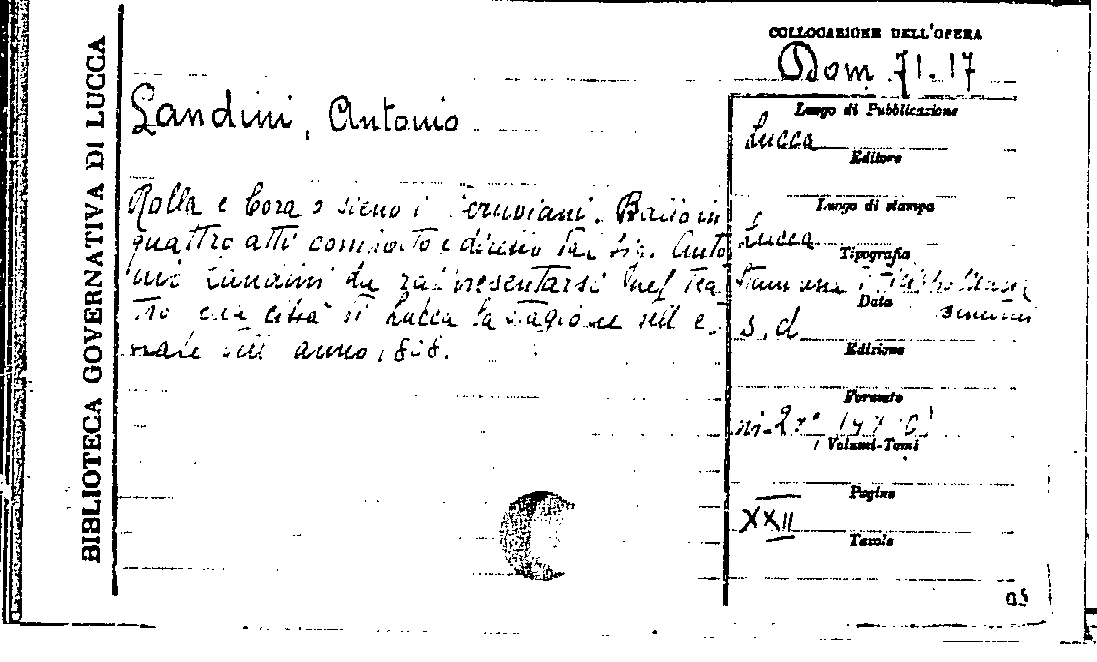 BIBLIOTECA GOVERNATIVA DI LUCCA
COLLOCAZIONE DELL'OPERA
Dom. 71.17
Landini, Antonio
Rolla e Cora o sieno i Peruviani. Ballo in
quattro atti composto e diretto dal Sig. Anto
nio Landini da rappresentarsi nel Tea
tro città di Lucca la stagione
anno
Luogo di Pubblicazione
Lucca
Editore
Luogo di stampa
Lucca
Tipografia
Data
s.d.
Edizione
Formato
Volumi-Tomi
Pagine
XXII
Tavole